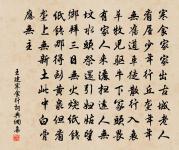 寒食家家出古城老人
看屋少年行丘壟年年
無舊道車徒散行入衰
草牧兒驅牛下冢頭畏
有家人來灑掃遠人無
墳水頭祭還引婦姑望
鄉拜三日無火燒紙錢
紙錢那得到黃泉但看
壟上無新土此中白骨
應無主
王建寒食行